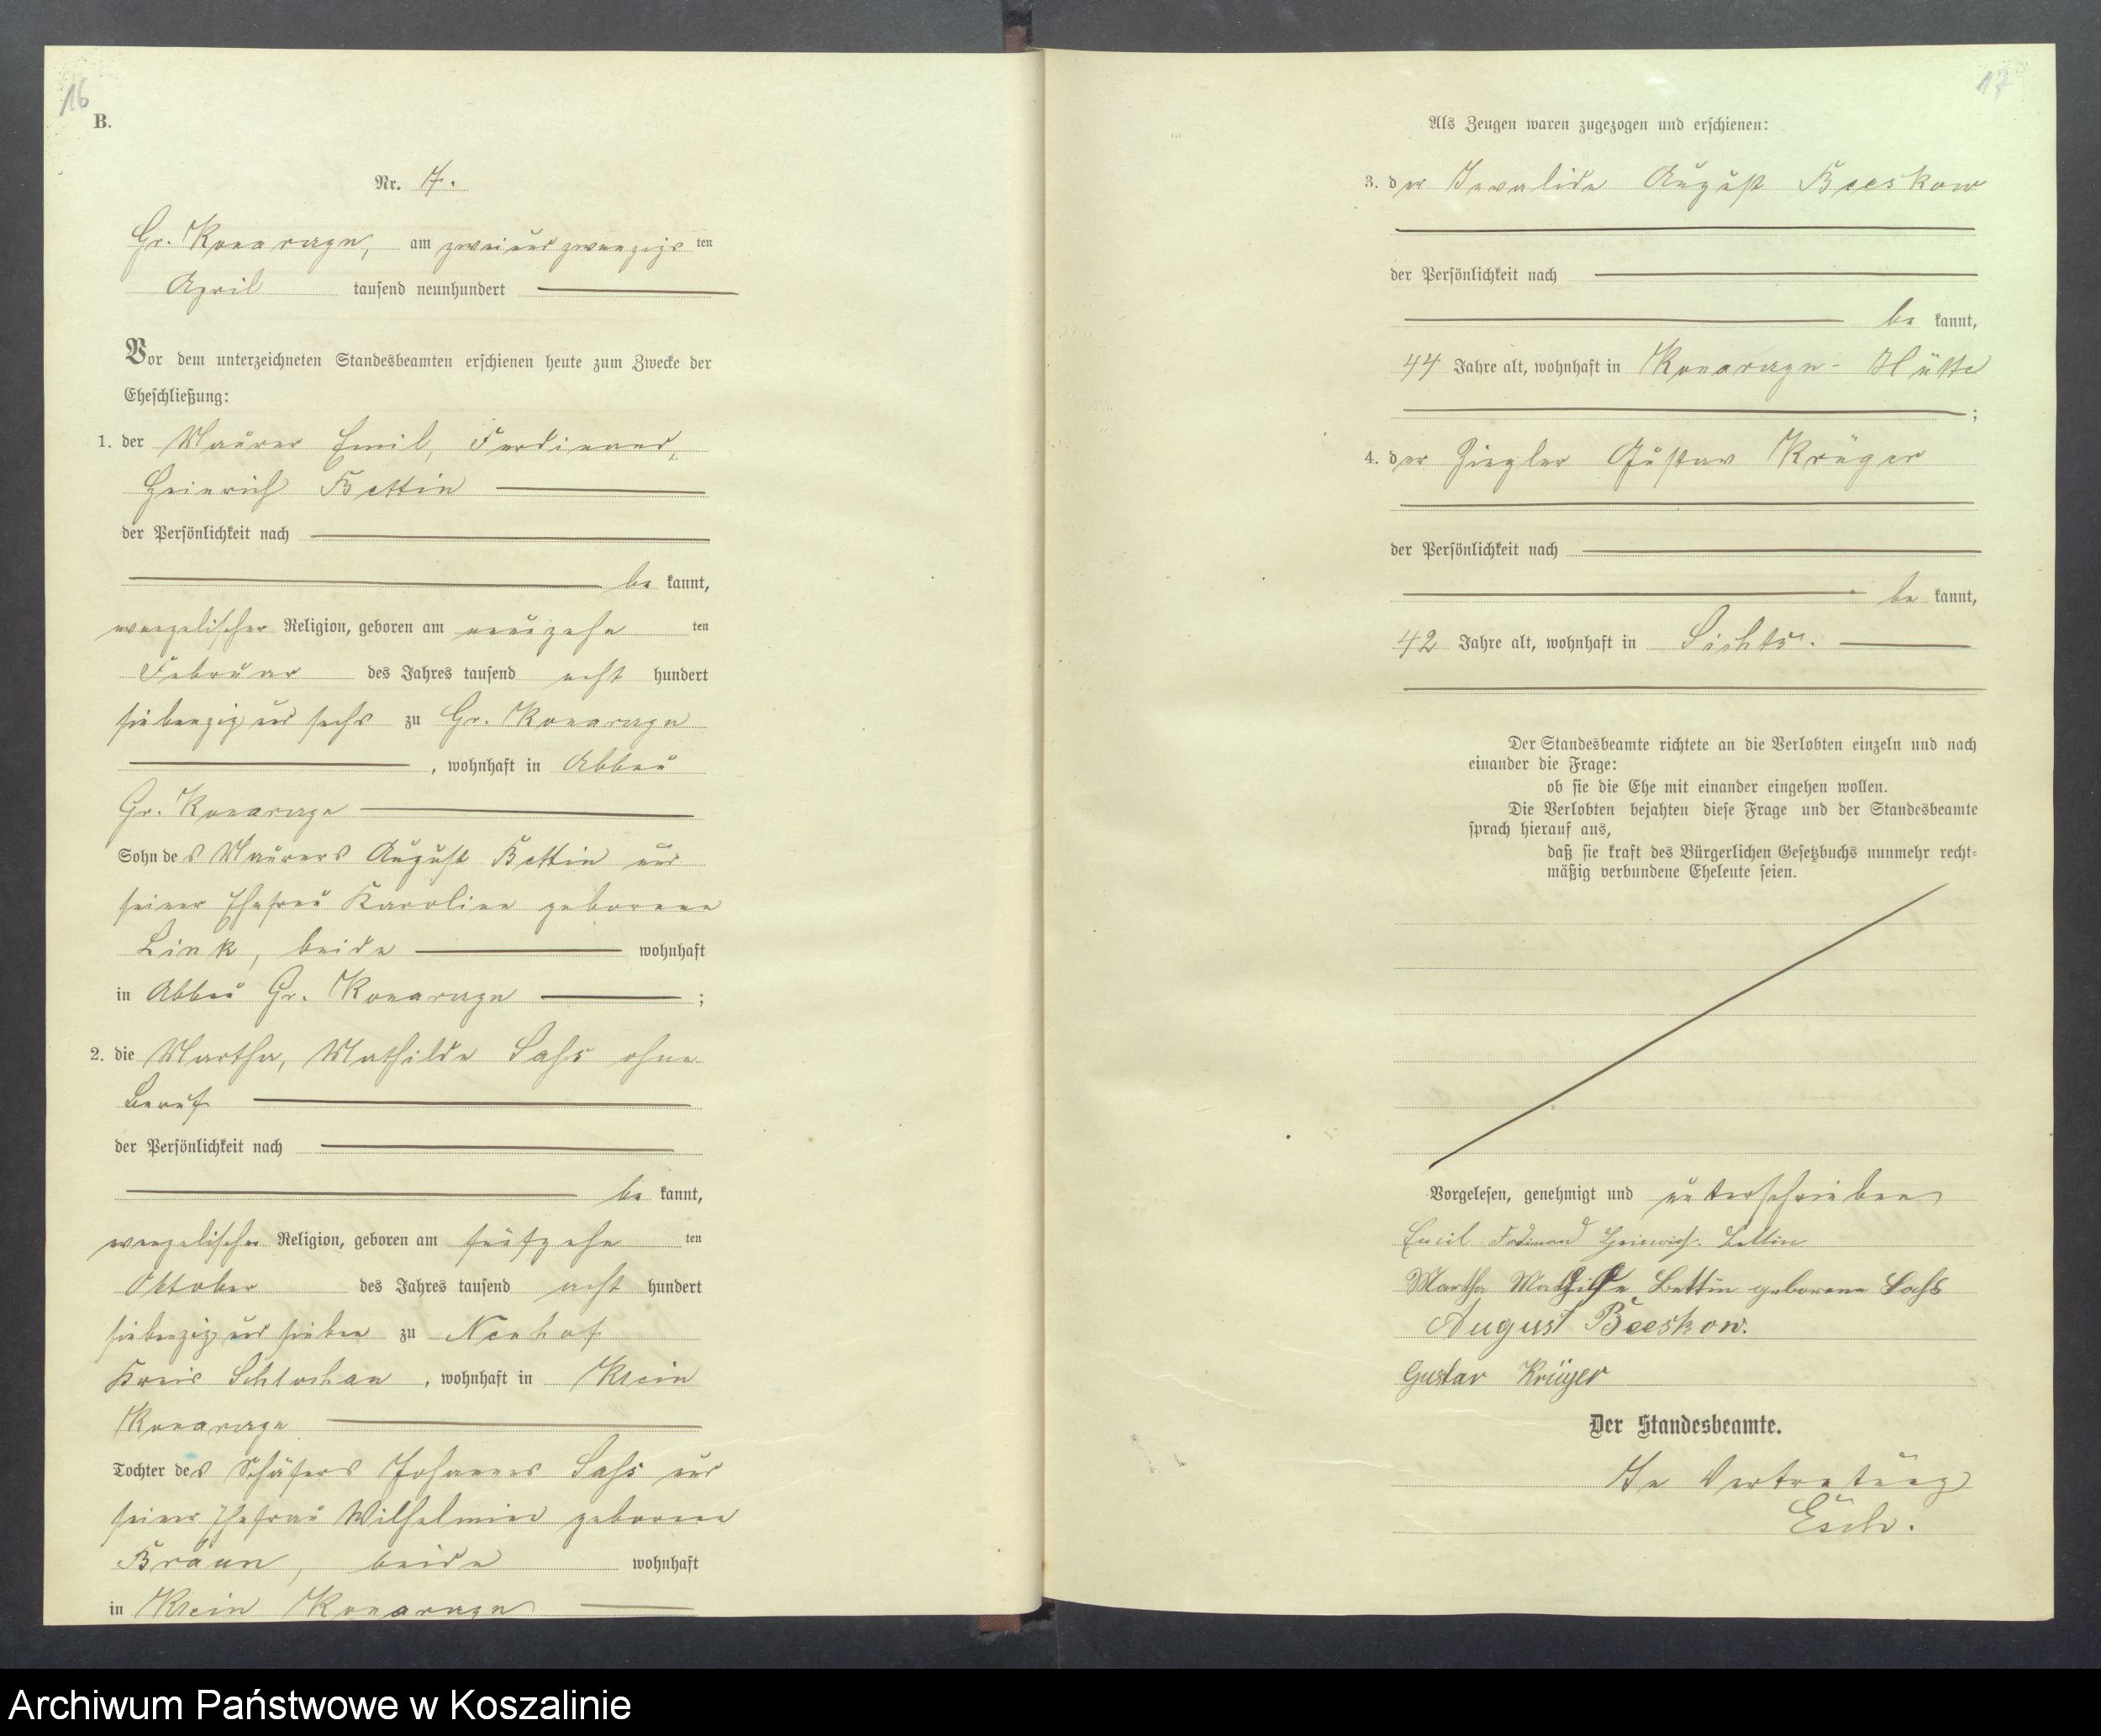 16
B.
Nr. 7.
Gr. Konarczyn, am zweiundzwanzigsten
April tausend neunhundert
Vor dem unterzeichneten Standesbeamten erschienen heute zum Zwecke der
Eheschließung:
1. der Maurer Emil, Ferdinand,
Heinrich Bettin
der Persönlichkeit nach
be kannt,
evangelischer Religion, geboren am neunzehn ten
Februar des Jahres tausend acht hundert
siebenzig und sechs zu Gr. Konarczyn
, wohnhaft in Abbau
Gr. Konarczyn
Sohn des Maurers August Bettin und
seiner Ehefrau Karoline geborene
Link, beide wohnhaft
in Abbau Gr. Konarczyn ;
2. die Martha, Mathilde Sahs ohne
Beruf
der Persönlichkeit nach
be kannt,
evangelischer Religion, geboren am fünfzehn ten
Oktober des Jahres tausend acht hundert
siebenzig und sieben zu Neuhof
Kreis Schlochau, wohnhaft in Klein
Konarczyn
Tochter des Schäfers Johannes Sahs und
seiner Ehefrau Wilhelmine geborene
Braun, beide wohnhaft
in Klein Konarczyn
17
Als Zeugen waren zugezogen und erschienen:
3. der Invalide August Beeskow
der Persönlichkeit nach
be kannt,
44 Jahre alt, wohnhaft in Konarczyn-Hütte
;
4. der Ziegler Gustav Krüger
der Persönlichkeit nach
be kannt,
42 Jahre alt, wohnhaft in
Der Standesbeamte richtete an die Verlobten einzeln und nach
einander die Frage:
ob sie die Ehe mit einander eingehen wollen.
Die Verlobten bejahten diese Frage und der Standesbeamte
sprach hierauf aus,
daß sie kraft des Bürgerlichen Gesetzbuchs nunmehr recht-
mäßig verbundene Eheleute seien.
Vorgelesen, genehmigt und unterschrieben
Emil Ferdinand Heinrich Bettin
Martha Mathilde Bettin geborene Sahs
August Beeskow.
Gustav Krüger
Der Standesbeamte.
In Vertretung
Esch.
Archiwum Państwowe w Koszalinie